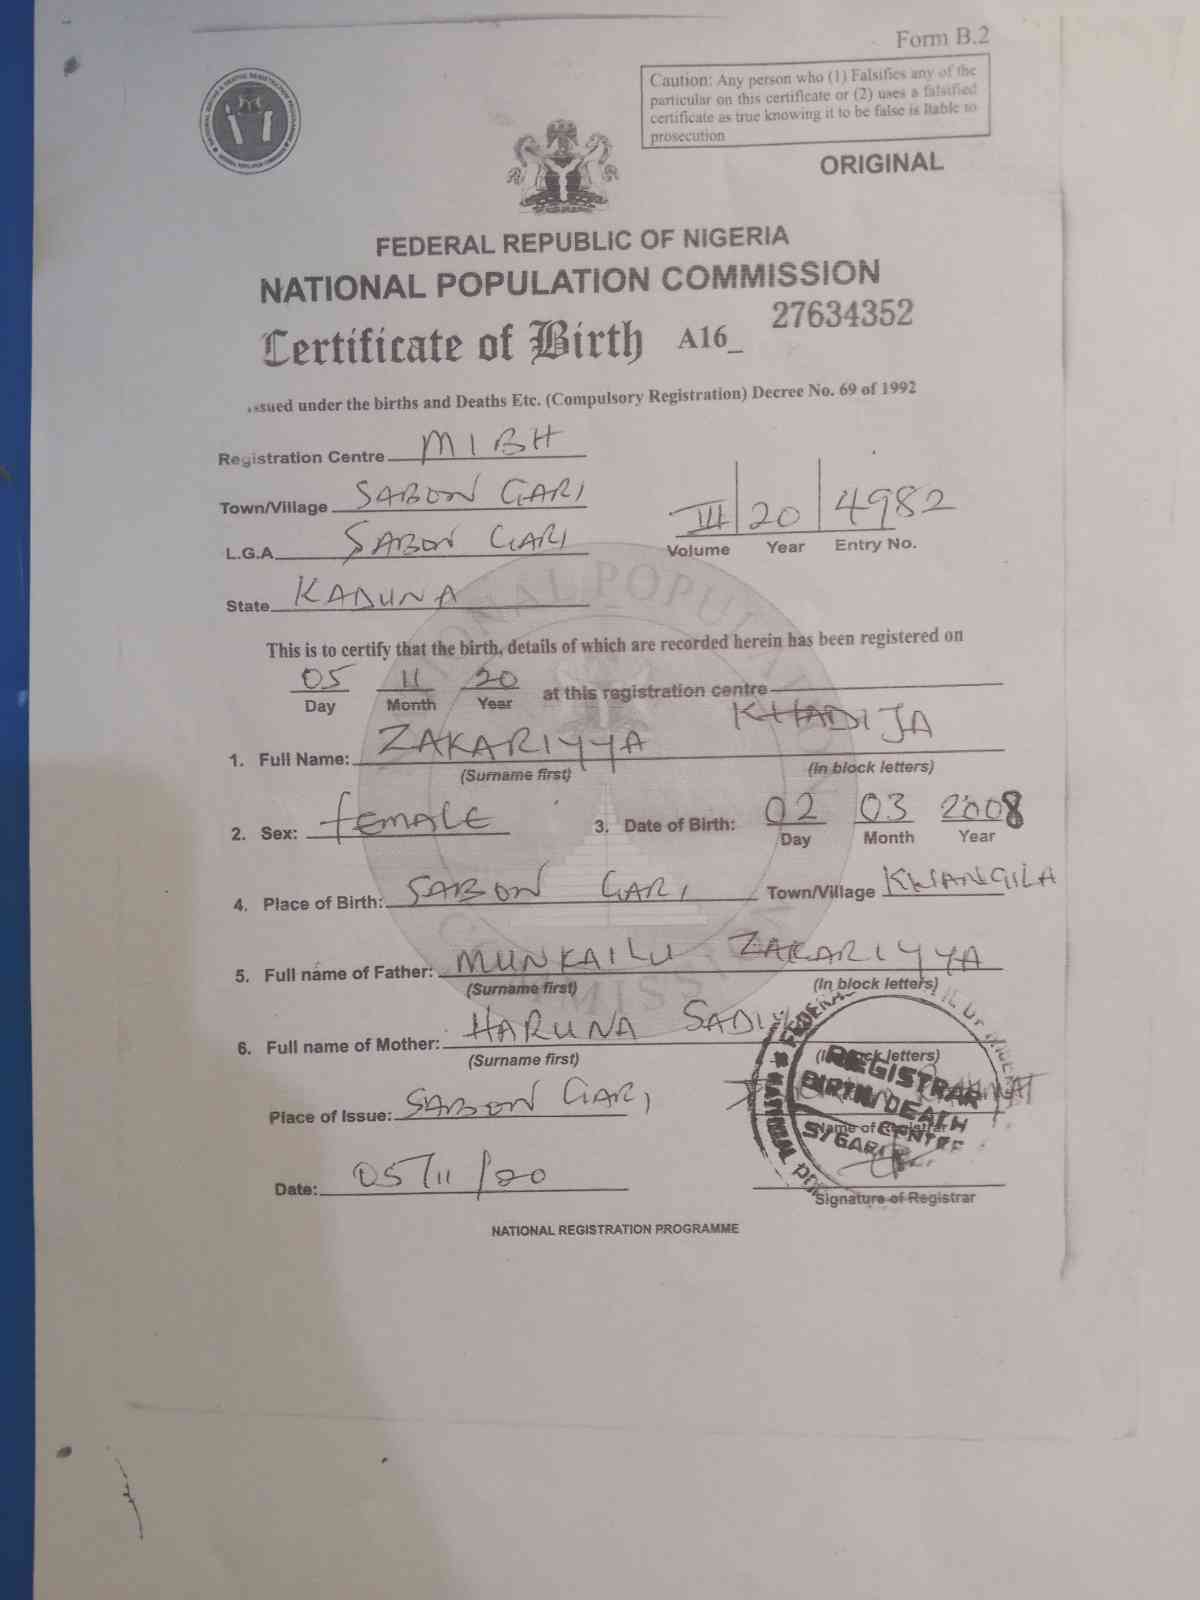 Form B.2
Caution: Any person who (1) Falsifies any of the
particular on this certificate or (2) uses a falsified
certificate as true knowing it to be false is liable to
prosecution
ORIGINAL
FEDERAL REPUBLIC OF NIGERIA
NATIONAL POPULATION COMMISSION
Certificate of Birth A16_ 27634352
issued under the births and Deaths Etc. (Compulsory Registration) Decree No. 69 of 1992
Registration Centre MIBH
Town/Village SABON GARI
L.G.A SABON GARI
State KADUNA
III 20 4982
Volume Year Entry No.
This is to certify that the birth, details of which are recorded herein has been registered on
05 11 20 at this registration centre
Day Month Year
1. Full Name: ZAKARIYYA KHADIJA
(Surname first) (In block letters)
2. Sex: FEMALE 3. Date of Birth: 02 03 2008
Day Month Year
4. Place of Birth: SABON GARI Town/Village KWANGILA
5. Full name of Father: MUNKAILU ZAKARIYYA
(Surname first) (In block letters)
6. Full name of Mother: HARUNA SADIY
(Surname first) (In block letters)
Place of Issue: SABON GARI
Name of Registrar
Date: 05/11/20
Signature of Registrar
REGISTRAR
BIRTH/DEATH
CENTRE
S/GARI
NATIONAL REGISTRATION PROGRAMME
NATIONAL POPULATION COMMISSION